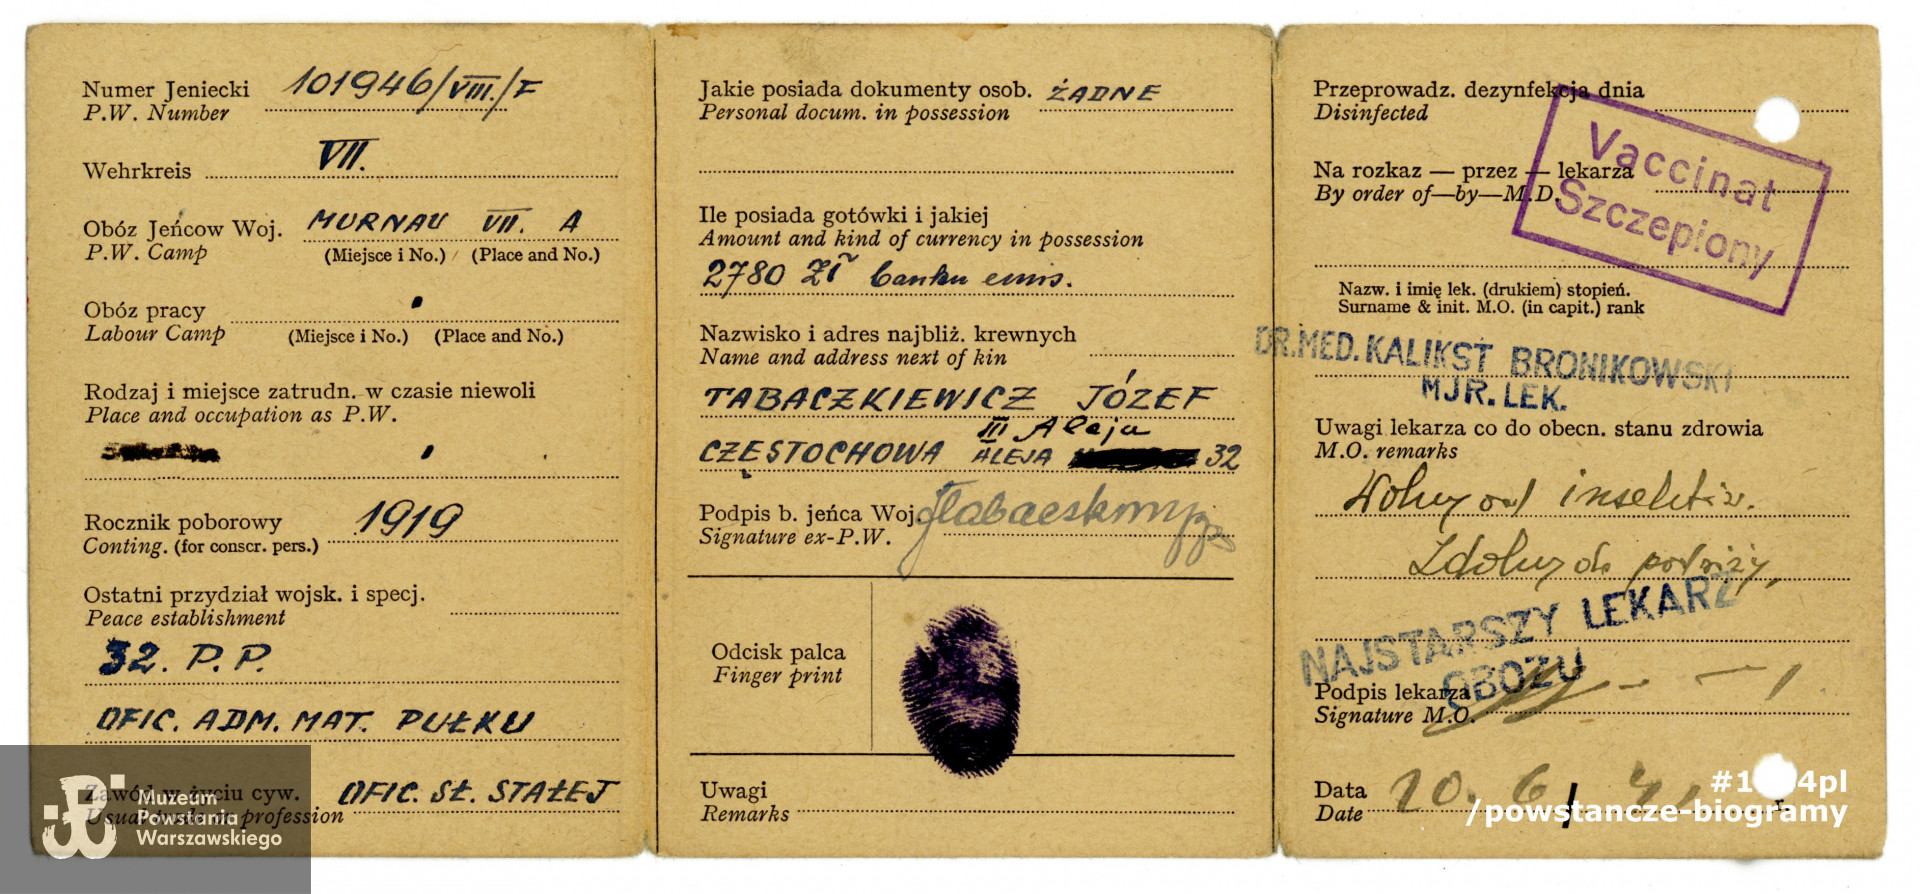 Numer Jeniecki 101946/VIII./F
P.W. Number
Wehrkreis VII.
Obóz Jeńcow Woj. MURNAU VII. A
P.W. Camp (Miejsce i No.) (Place and No.)
Obóz pracy
Labour Camp (Miejsce i No.) (Place and No.)
Rodzaj i miejsce zatrudn. w czasie niewoli
Place and occupation as P.W.
Rocznik poborowy 1919
Conting. (for conscr. pers.)
Ostatni przydział wojsk. i specj.
Peace establishment
32. P.P.
OFIC. ADM. MAT. PUŁKU
Zawód w życiu cyw. OFIC. SŁ. STAŁEJ
profession
Muzeum
Powstania
Warszawskiego
Jakie posiada dokumenty osob. ŻADNE
Personal docum. in possession
Ile posiada gotówki i jakiej
Amount and kind of currency in possession
2780 Zł banku emis.
Nazwisko i adres najbliż. krewnych
Name and address next of kin
TABACZKIEWICZ JÓZEF
III Aleja
CZĘSTOCHOWA ALEJA 32
Podpis b. jeńca Woj.
Signature ex-P.W.
Odcisk palca
Finger print
Uwagi
Remarks
Przeprowadz. dezynfekcja dnia
Disinfected
Vaccinat
Szczepiony
Na rozkaz — przez — lekarza
By order of—by—M.D.
Nazw. i imię lek. (drukiem) stopień.
Surname & init. M.O. (in capit.) rank
DR. MED. KALIKST BRONIKOWSKI
MJR. LEK.
Uwagi lekarza co do obecn. stanu zdrowia
M.O. remarks
Wolny od insektów.
Zdolny do podróży,
NAJSTARSZY LEKARZ
OBOZU
Podpis lekarza
Signature M.O.
Data
Date 20. 6
/powstancze-biogramy